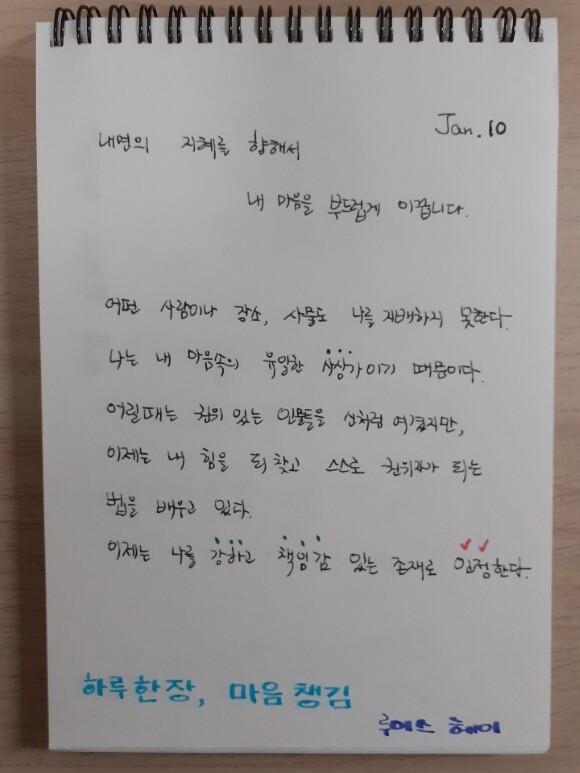 Jan. 10
내면의 지혜를 향해서
내 마음을 부드럽게 이끕니다.
어떤 사람이나 장소, 사물도 나를 지배하지 못한다.
나는 내 마음속의 유일한 사상가이기 때문이다.
어릴때는 권위 있는 인물들을 신처럼 여겼지만,
이제는 내 힘을 되찾고 스스로 권위자가 되는
법을 배우고 있다.
이제는 나를 강하고 책임감 있는 존재로 인정한다.
하루 한 장, 마음챙김
루이스 헤이